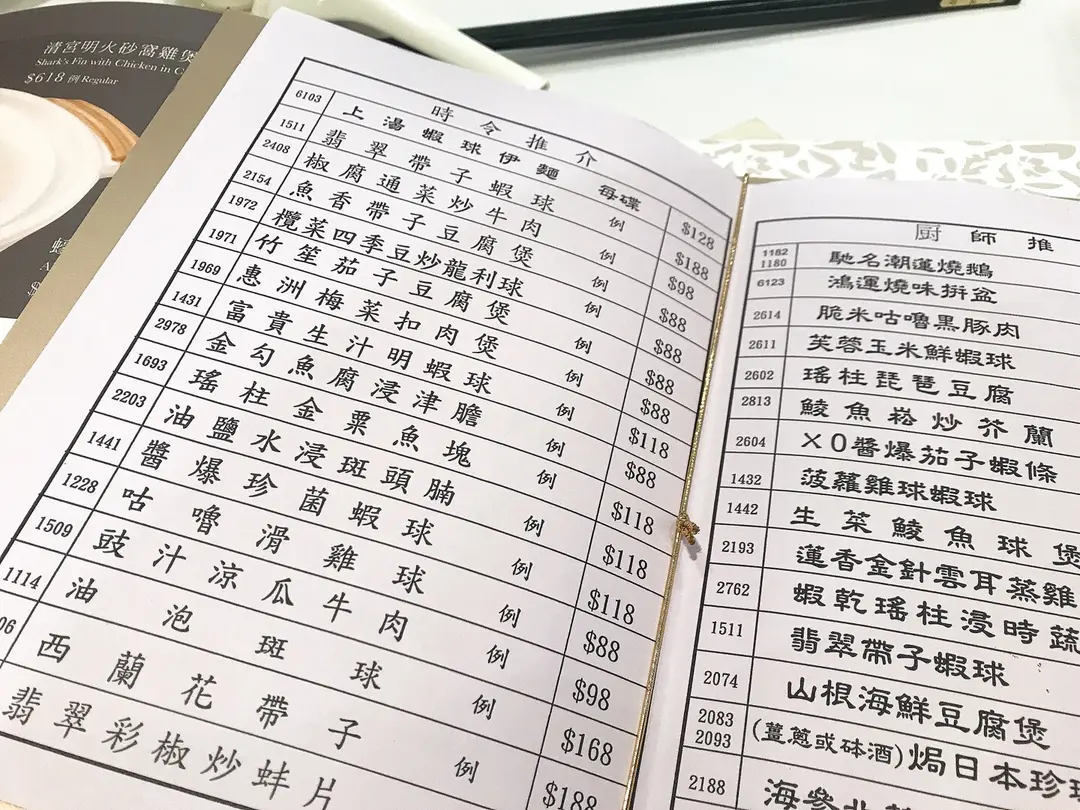 清宮明火砂窩雞煲
Shark's Fin with Chicken in C
$618 例 Regular
時令推介
6103 上湯蝦球伊麵 每碟 $128
1511 翡翠帶子蝦球 例 $188
2408 椒腐通菜炒牛肉 例 $98
2154 魚香帶子豆腐煲 例 $88
1972 欖菜四季豆炒龍利球 $88
1971 竹笙茄子豆腐煲 例 $88
1969 惠洲梅菜扣肉煲 例 $88
1431 富貴生汁明蝦球 例 $118
2978 金勾魚腐浸津膽 例 $88
1693 瑤柱金粟魚塊 例 $118
2203 油鹽水浸斑頭腩 例 $118
1441 醬爆珍菌蝦球 例 $118
1228 咕嚕滑雞球 例 $88
1509 豉汁涼瓜牛肉 例 $98
1114 油泡斑球 例 $168
06 西蘭花帶子 例 $188
翡翠彩椒炒蚌片
廚師推
1182
1180 馳名潮蓮燒鵝
6123 鴻運燒味拼盆
2614 脆米咕嚕黑豚肉
2611 芙蓉玉米鮮蝦球
2602 瑤柱琵琶豆腐
2813 鯪魚崧炒芥蘭
2604 XO醬爆茄子蝦條
1432 菠蘿雞球蝦球
1442 生菜鯪魚球煲
2193 蓮香金針雲耳蒸雞
2762 蝦乾瑤柱浸時蔬
1511 翡翠帶子蝦球
2074 山根海鮮豆腐煲
2083
2093 (薑蔥或砵酒)焗日本珍
2188 海參